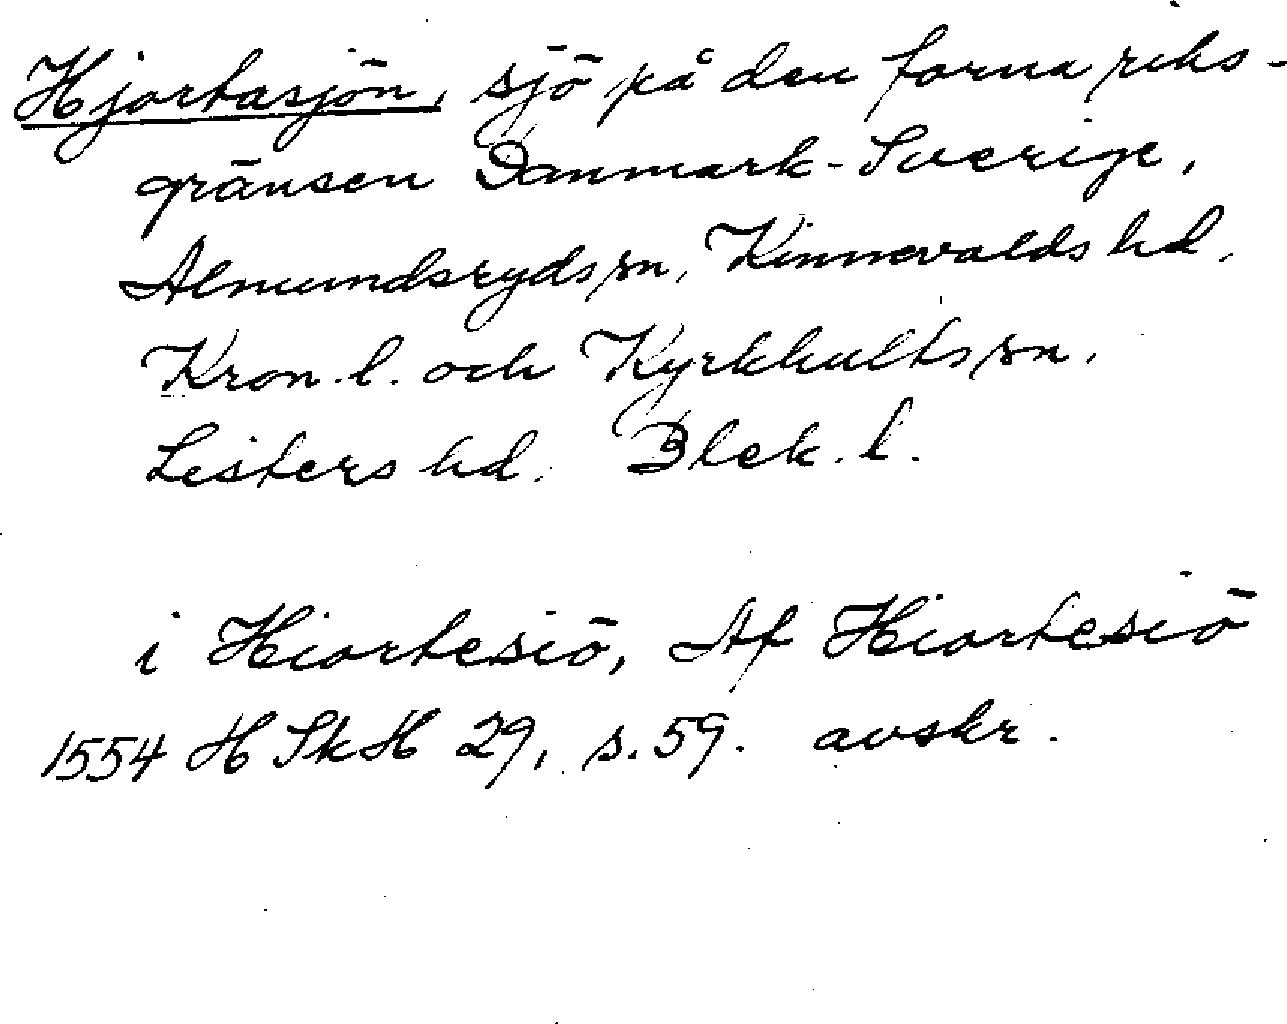 Hjortasjön, sjö på den forna riks-
gränsen Danmark-Sverige,
Almundsryds sn, Kinnevalds hd,
Kron. l. och Kyrkhults sn,
Listers hd. Blek. l.
i Hiortesiö, Af Hiortesiö
1554 H Sk H 29, s. 59. avskr.